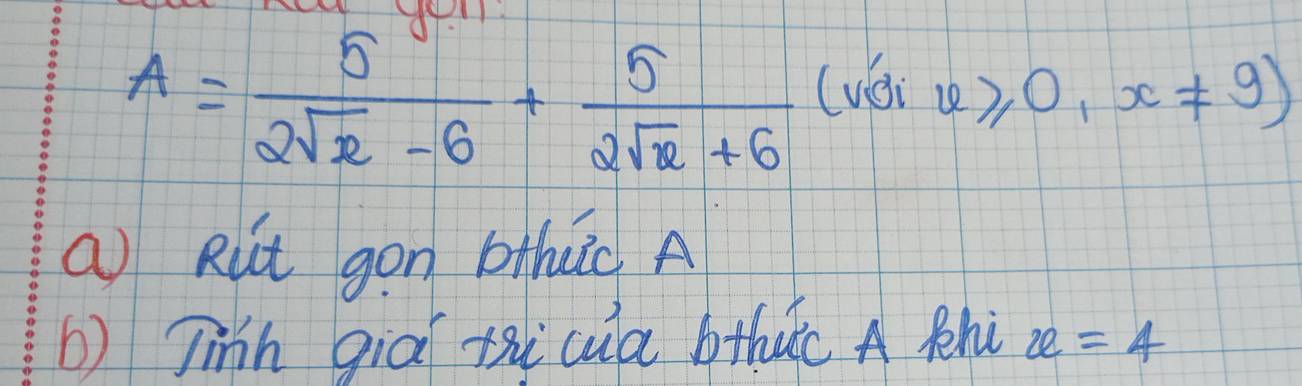 gọn:
A = 5/(2√x - 6) + 5/(2√x + 6) (với x ⩾ 0, x ≠ 9)
a) Rút gọn bthức A
b) Tính giá trị của bthức A khi x = 4